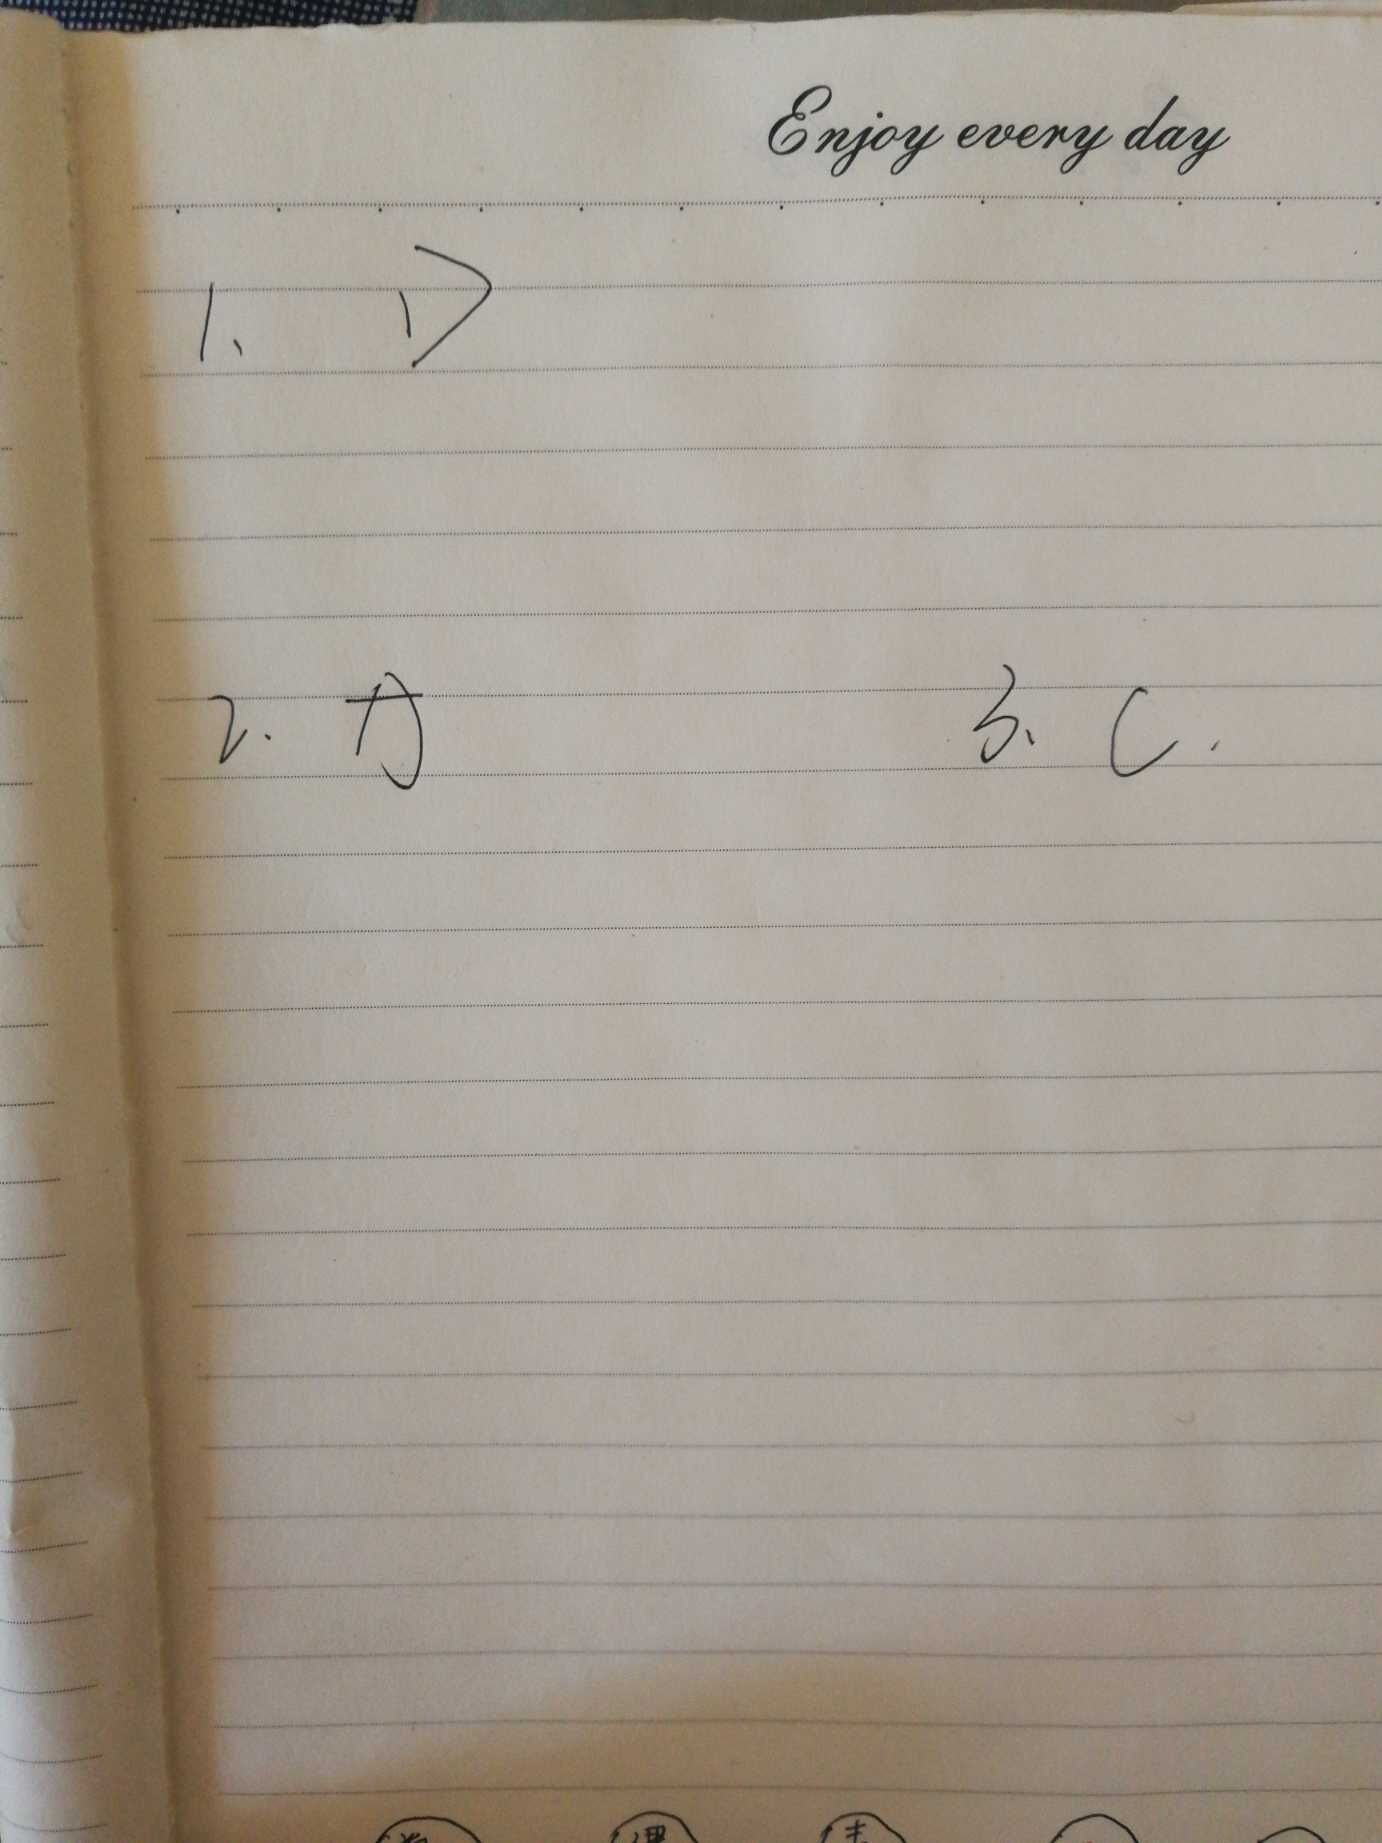 Enjoy every day
1. D
2. A 3. C.